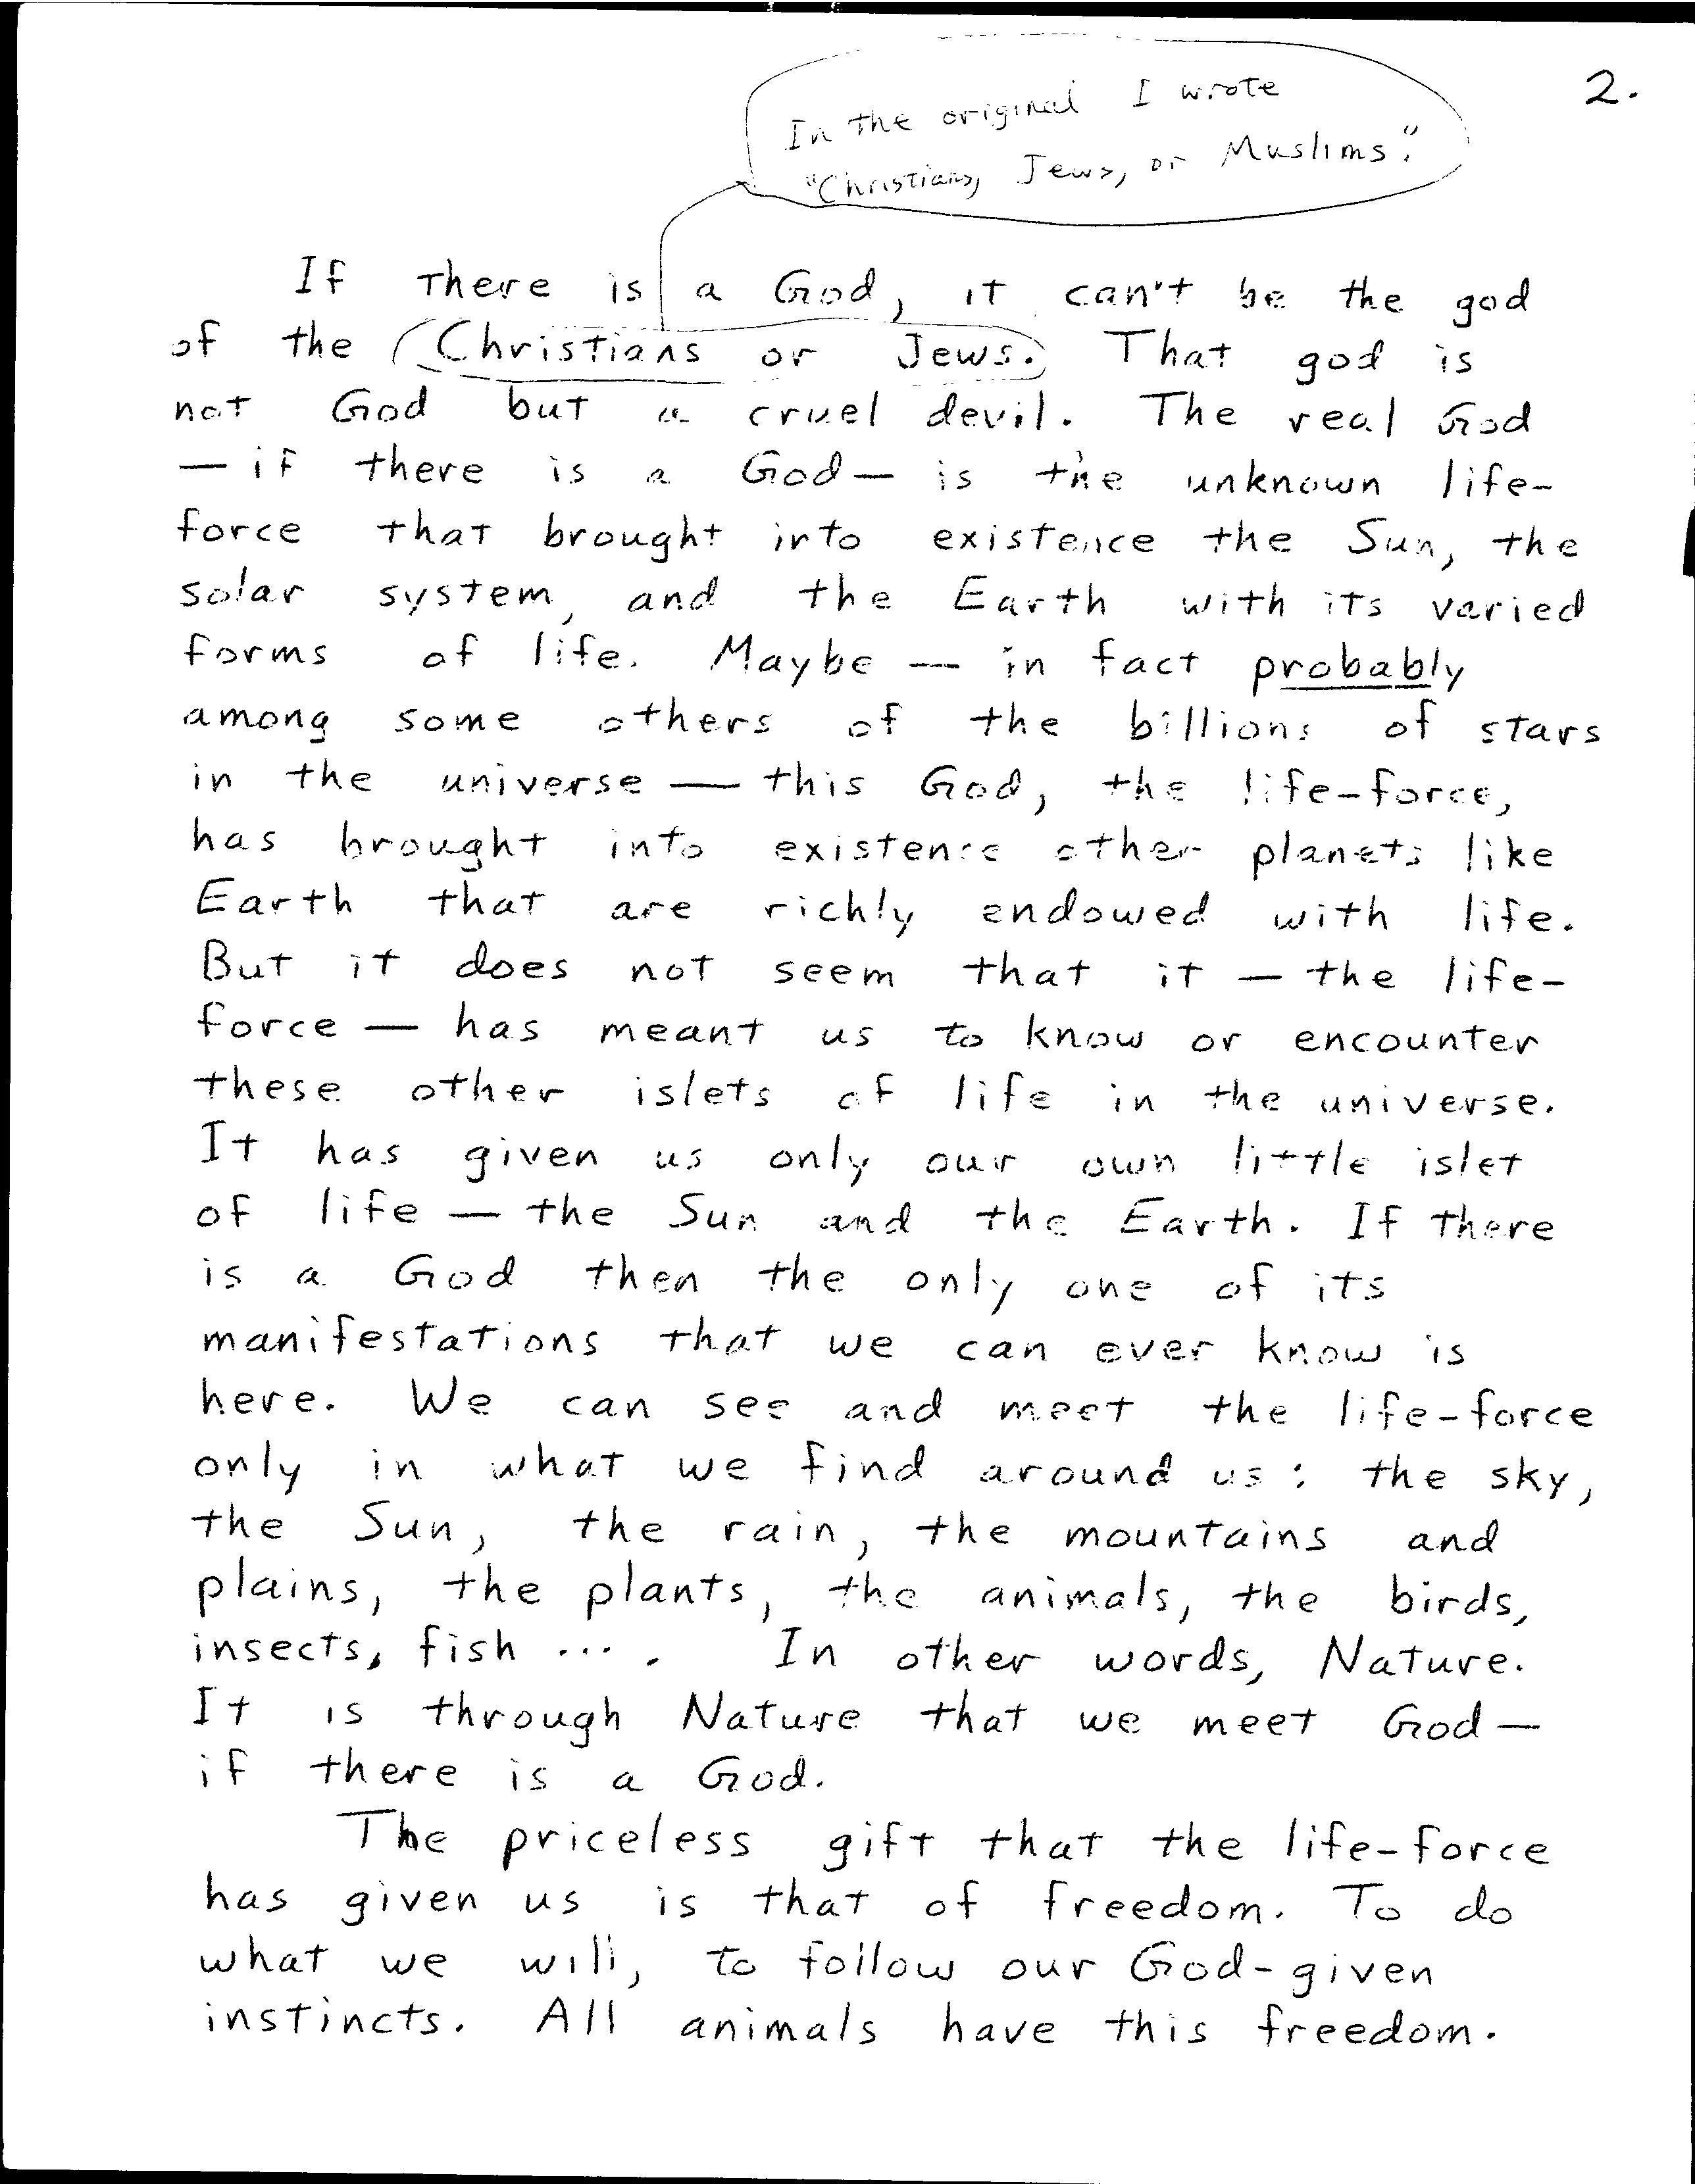 2.
In the original I wrote
"Christians, Jews, or Muslims."
If there is a God, it can't be the god
of the Christians or Jews. That god is
not God but a cruel devil. The real God
— if there is a God — is the unknown life-
force that brought into existence the Sun, the
solar system, and the Earth with its varied
forms of life. Maybe — in fact probably
among some others of the billions of stars
in the universe — this God, the life-force,
has brought into existence other planets like
Earth that are richly endowed with life.
But it does not seem that it — the life-
force — has meant us to know or encounter
these other islets of life in the universe.
It has given us only our own little islet
of life — the Sun and the Earth. If there
is a God then the only one of its
manifestations that we can ever know is
here. We can see and meet the life-force
only in what we find around us: the sky,
the Sun, the rain, the mountains and
plains, the plants, the animals, the birds,
insects, fish ... . In other words, Nature.
It is through Nature that we meet God —
if there is a God.
The priceless gift that the life-force
has given us is that of freedom. To do
what we will, to follow our God-given
instincts. All animals have this freedom.